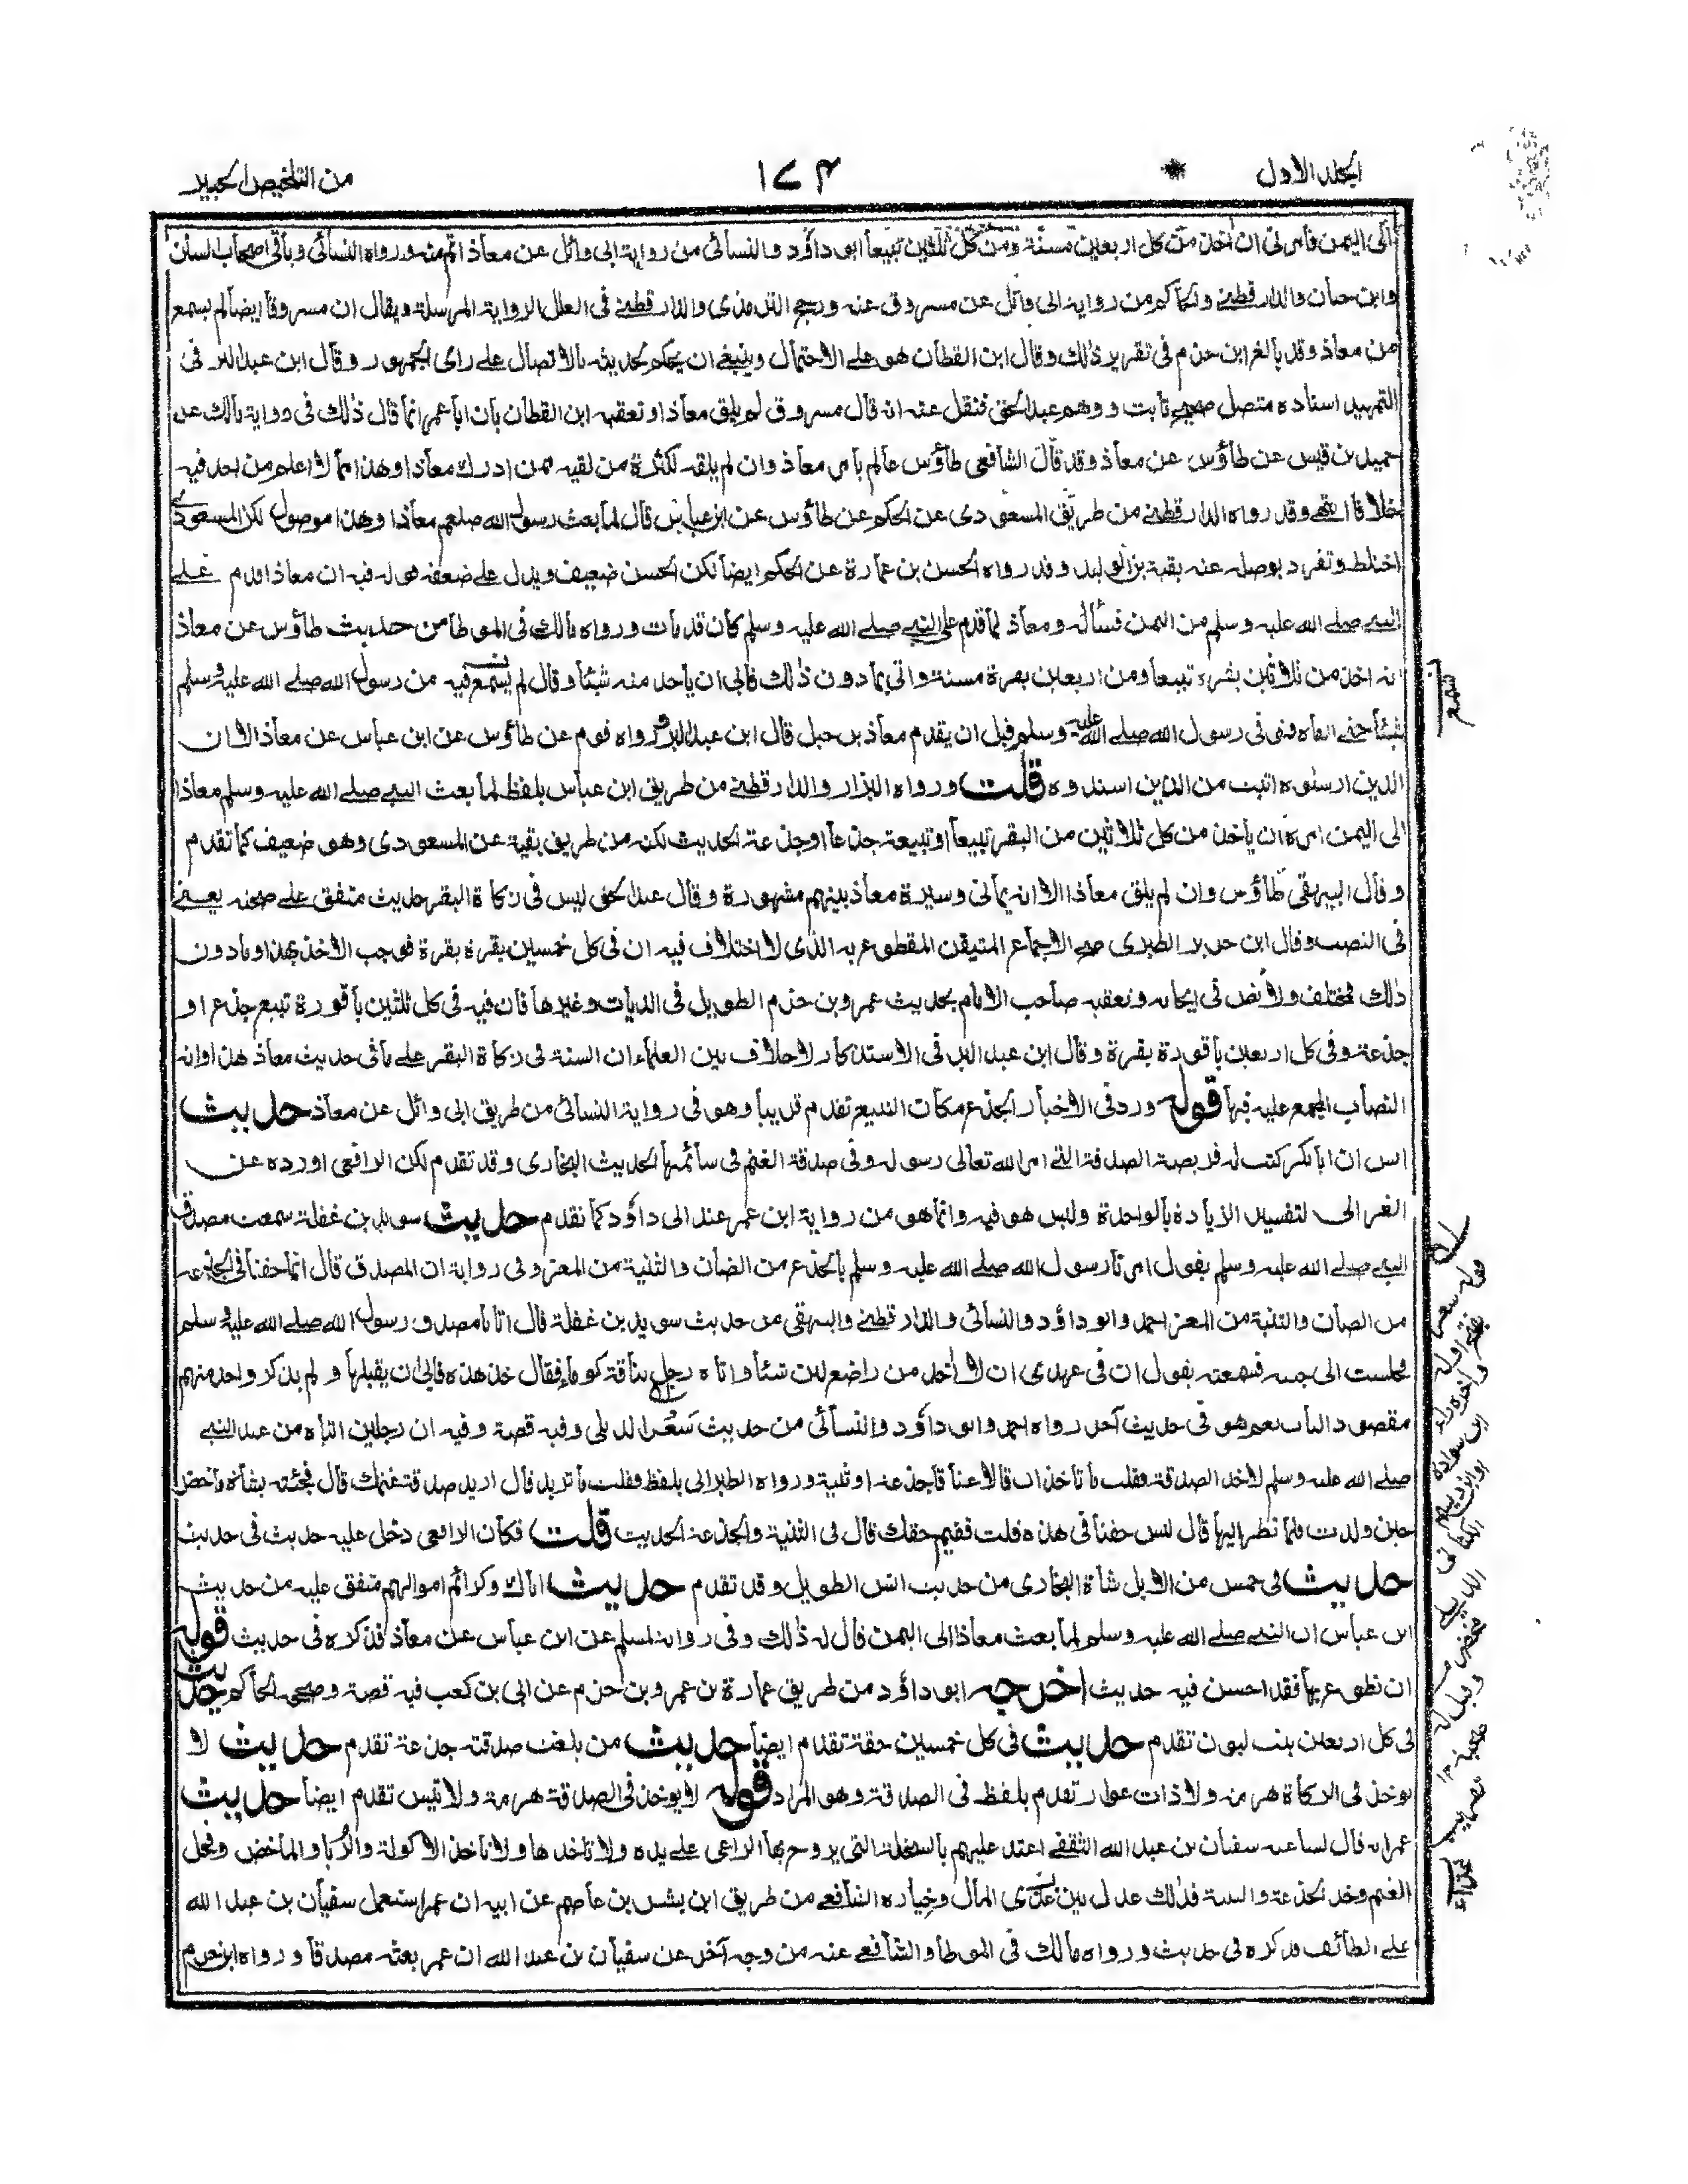 الجلد الاول * ١٧٤ من التلخيص الحبير
الى اليمن فامرنى ان آخذ من كل اربعين مسنة ومن كل ثلثين تبيعا ابو داؤد والنسائى من رواية ابى وائل عن معاذ اتم منه ورواه النسائى وباقى اصحاب السنن
وابن حبان والدارقطنے والحاكم من رواية ابى وائل عن مسروق عنه ورجح الترمذى والدارقطنے فى العلل الرواية المرسلة ويقال ان مسروقا ايضا لم يسمع
من معاذ وقد بالغ ابن حزم فى تقرير ذلك وقال ابن القطان هو علے الاحتمال وينبغے ان يحكم لحديثه بالاتصال علے راى الجمهور وقال ابن عبد البر فى
التمهيد اسناده متصل صحيح ثابت ووهم عبد الحق فنقل عنه انه قال مسروق لم يلق معاذا وتعقبه ابن القطان بان ابا عمر انما قال ذلك فى رواية مالك عن
حميد بن قيس عن طاؤس عن معاذ وقد قال الشافعى طاؤس عالم بامر معاذ وان لم يلقه لكثرة من لقيه ممن ادرك معاذا وهذا مما لا اعلم من احد فيه
خلافا انتهے وقد رواه الدارقطنے من طريق المسعودى عن الحكم عن طاؤس عن ابن عباس قال لما بعث رسول الله صلعم معاذا وهذا موصول لكن المسعودى
اختلط وتفرد بوصله عنه بقية بن الوليد وقد رواه الحسن بن عمارة عن الحكم ايضا لكن الحسن ضعيف ويدل علے ضعفه قوله فيه ان معاذا قدم علے
النبے صلے الله عليه وسلم من اليمن فسأله ومعاذ لما قدم على النبے صلے الله عليه وسلم كان قد مات ورواه مالك فى الموطا من حديث طاؤس عن معاذ
انه اخذ من ثلاثين بقرة تبيعا ومن اربعين بقرة مسنة واتى بما دون ذلك فابى ان ياخذ منه شيئا وقال لم نسمع فيه من رسول الله صلے الله عليه وسلم
شيئا حتے القاه فتوفى رسول الله صلے الله عليه وسلم قبل ان يقدم معاذ بن جبل قال ابن عبد البر ورواه قوم عن طاؤس عن ابن عباس عن معاذ الا ان
الذين ارسلوه اثبت من الذين اسندوه قلت ورواه البزار والدارقطنے من طريق ابن عباس بلفظ لما بعث النبے صلے الله عليه وسلم معاذا
الى اليمن امره ان ياخذ من كل ثلاثين من البقر تبيعا او تبيعة جذعا او جذعة الحديث لكنه من طريق بقية عن المسعودى وهو ضعيف كما تقدم
وقال البيهقى طاؤس وان لم يلق معاذا الا انه يمانى وسيرة معاذ بينهم مشهورة وقال عبد الحق ليس فى زكاة البقر حديث متفق علے صحته يعنے
فى النصب وقال ابن جرير الطبرى صح الاجماع المتيقن المقطوع به الذى لا اختلاف فيه ان فى كل خمسين بقرة بقرة فوجب الاخذ بهذا وما دون
ذلك فمختلف ولا نص فى ايجابه وتعقبه صاحب الامام بحديث عمرو بن حزم الطويل فى الديات وغيرها فان فيه فى كل ثلثين باقورة تبيع جذع او
جذعة وفى كل اربعين باقورة بقرة وقال ابن عبد البر فى الاستذكار لا خلاف بين العلماء ان السنة فى زكاة البقر علے ما فى حديث معاذ هذا وانه
النصاب المجمع عليه فيها قوله ورد فى الاخبار الجذع مكان التبيع تقدم قريبا وهو فى رواية النسائى من طريق ابى وائل عن معاذ حديث
انس ان ابا بكر كتب له فريضة الصدقة التے امر الله تعالى رسوله وفى صدقة الغنم فى سائمتها الحديث البخارى وقد تقدم لكن الرافعى اورده عن
الغزالى لتفسير الزيادة بالواحدة وليس هو فيه وانما هو من رواية ابن عمر عند ابى داؤد كما تقدم حديث سويد بن غفلة سمعت مصدق
النبے صلے الله عليه وسلم يقول امرنا رسول الله صلے الله عليه وسلم بالجذع من الضان والثنية من المعز وفى رواية ان المصدق قال انما حقنا فى الجذعة
من الضان والثنية من المعز احمد وابو داؤد والنسائى والدارقطنے والبيهقى من حديث سويد بن غفلة قال اتانا مصدق رسول الله صلے الله عليه وسلم
فجلست الى جنبه فسمعته يقول ان فى عهدى ان لا آخذ من راضع لبن شيئا واتاه رجل بناقة كوماء فقال خذ هذه فابى ان يقبلها ولم يذكر واحد منهم
مقصود الباب نعم هو فى حديث آخر رواه احمد وابو داؤد والنسائى من حديث سعر الديلى وفيه قصة وفيه ان رجلين اتياه من عند النبے
صلے الله عليه وسلم لاخذ الصدقة فقلت ما تاخذان قالا عناقا جذعة او ثنية ورواه الطبرانى بلفظ فقلت ما تريد قال اريد صدقة غنمك قال فجئته بشاة ماخض
حين ولدت فلما نظر اليها قال ليس حقنا فى هذه قلت ففيم حقك قال فى الثنية والجذعة الحديث قلت فكان الرافعى دخل عليه حديث فى حديث
حديث فى خمس من الابل شاة البخارى من حديث انس الطويل وقد تقدم حديث اياك وكرائم اموالهم متفق عليه من حديث
ابن عباس ان النبے صلے الله عليه وسلم لما بعث معاذا الى اليمن قال له ذلك وفى رواية لمسلم عن ابن عباس عن معاذ فذكره فى حديث قوله
ان تطوع بها فقد احسن فيه حديث اخرجه ابو داؤد من طريق عمارة بن عمرو بن حزم عن ابى بن كعب فيه قصة وصححه الحاكم حديث
فى كل اربعين بنت لبون تقدم حديث فى كل خمسين حقة تقدم ايضا حديث من بلغت صدقته جذعة تقدم حديث لا
يوخذ فى الزكاة هرمة ولا ذات عوار تقدم بلفظ فى الصدقة وهو المراد قوله لا يوخذ فى الصدقة هرمة ولا تيس تقدم ايضا حديث
عمر انه قال لساعيه سفيان بن عبد الله الثقفے اعتد عليهم بالسخلة التى يروح بها الراعى علے يده ولا تاخذها ولا تاخذ الاكولة والربا والماخض وفحل
الغنم وخذ الجذعة والثنية فذلك عدل بين غذى المال وخياره الشافعے من طريق ابن بشر بن عاصم عن ابيه ان عمر استعمل سفيان بن عبد الله
علے الطائف فذكره فى حديث ورواه مالك فى الموطا والشافعے عنه من وجه آخر عن سفيان بن عبد الله ان عمر بعثه مصدقا ورواه ابن حزم